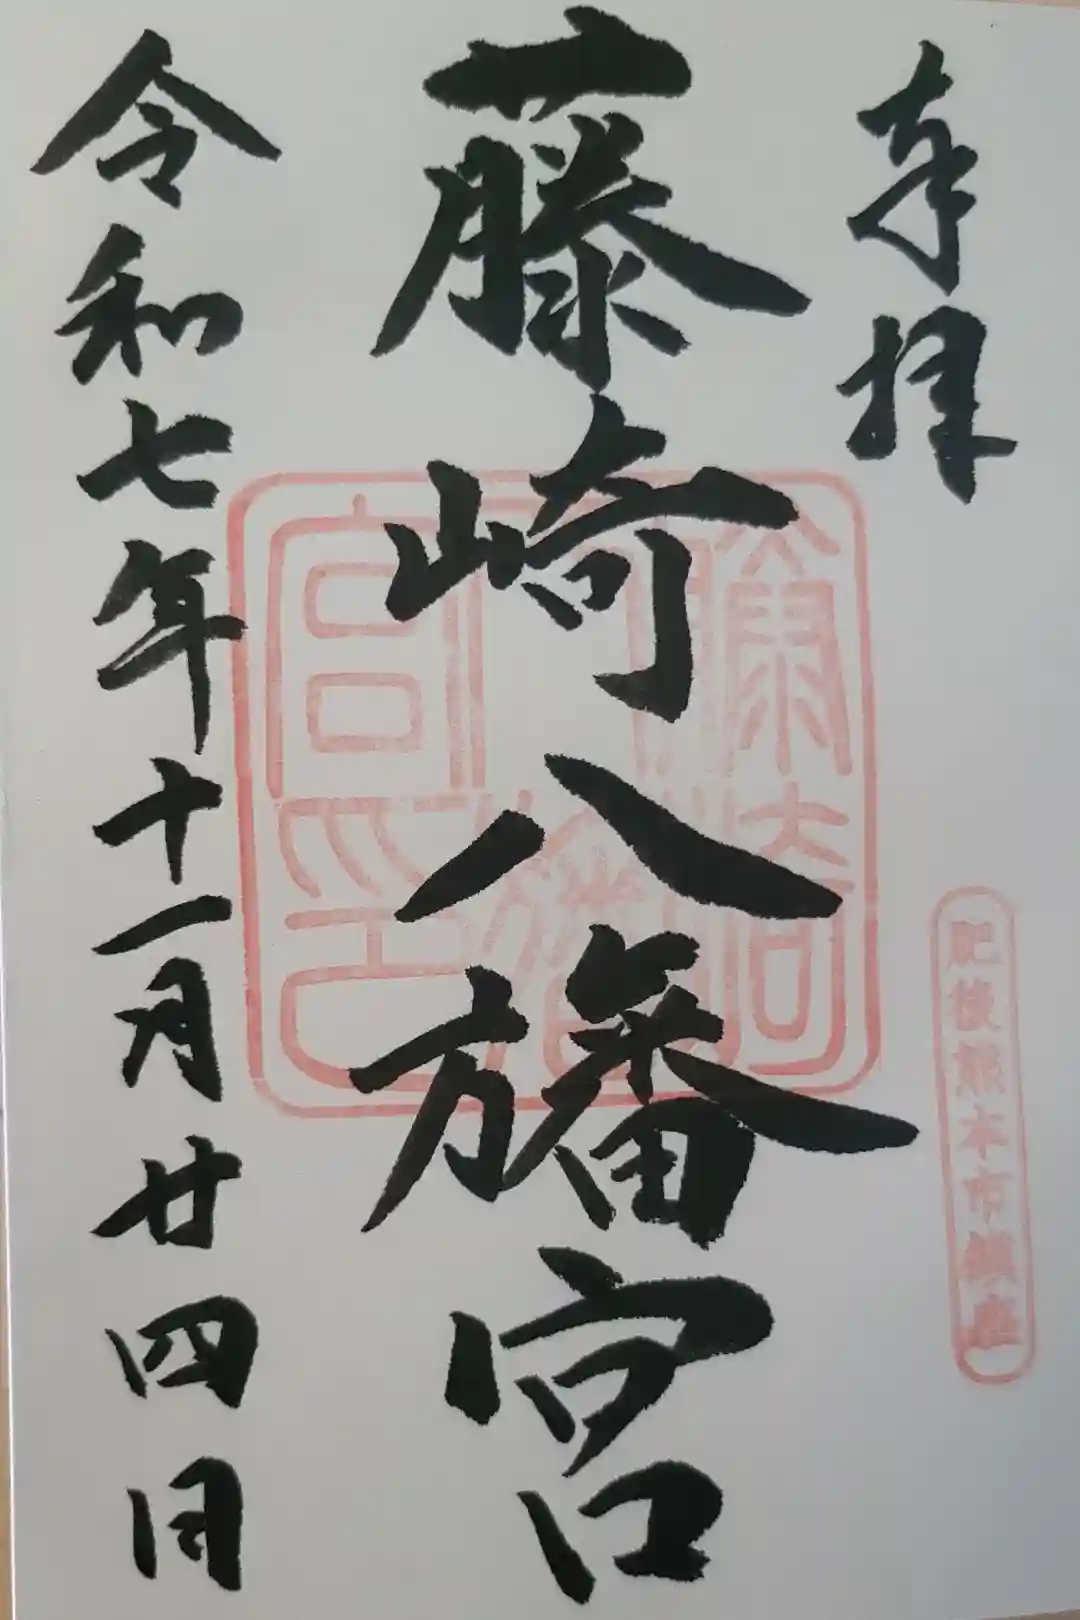 奉拝
肥後熊本市鎮座
藤崎八旛宮
藤崎八旛宮印
令和七年十一月廿四日